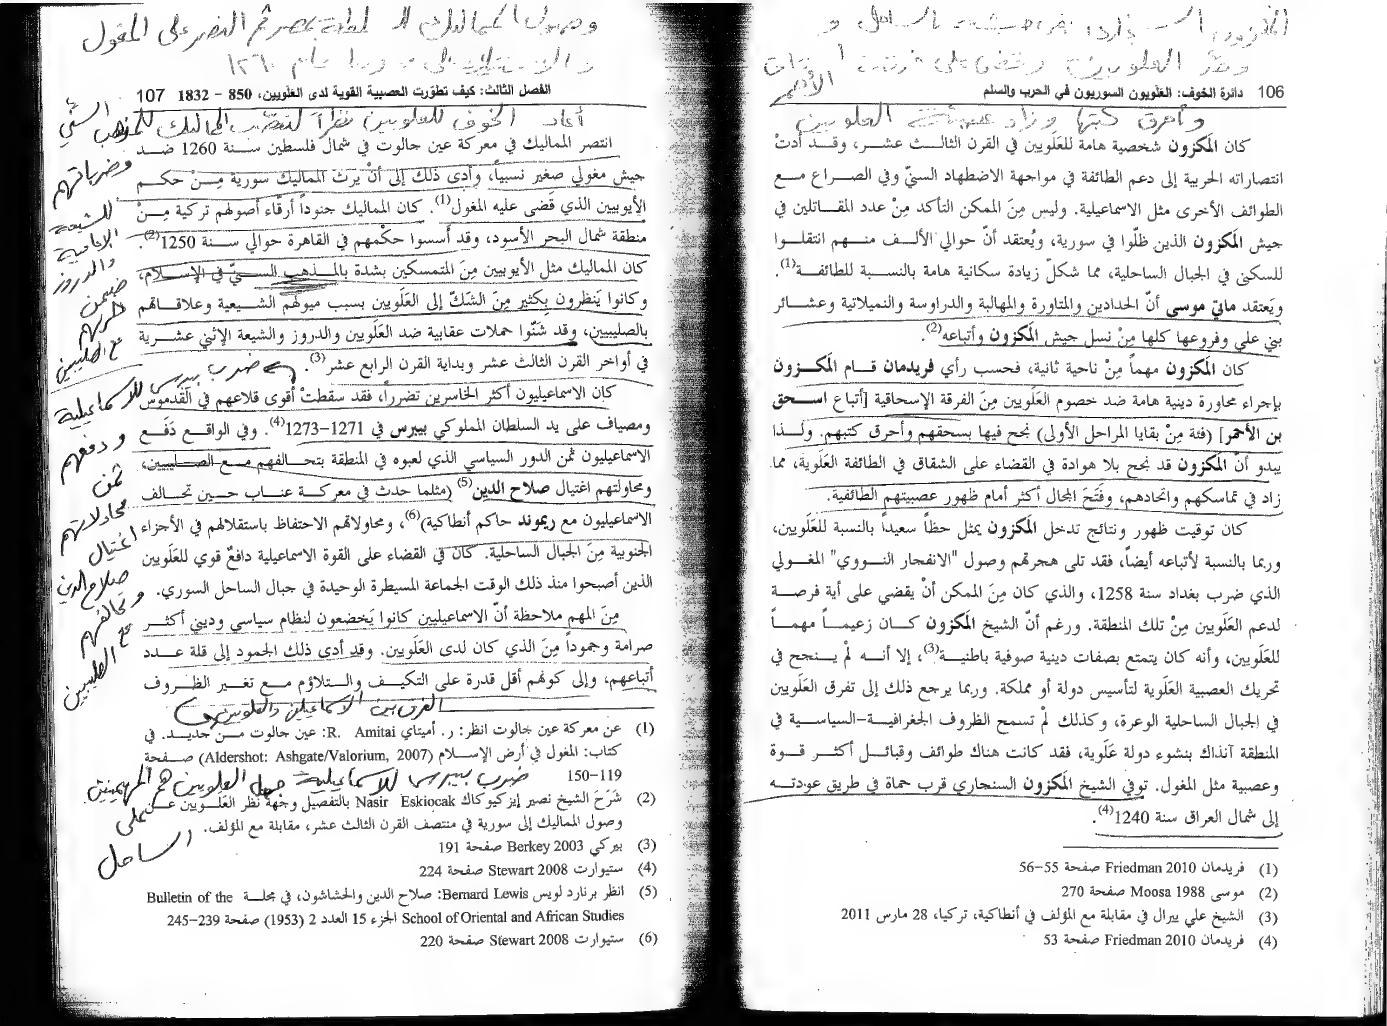 المكزون
106 دائرة الخوف: العلويون السوريون في الحرب والسلم
وأحرق كتبها وزاد عصبية العلويين
كان المكزون شخصية هامة للعَلَويين في القرن الثالث عشر، وقد أدت
انتصاراته الحربية إلى دعم الطائفة في مواجهة الاضطهاد السنيّ وفي الصراع مع
الطوائف الأخرى مثل الاسماعيلية. وليس مِنَ الممكن التأكد مِنْ عدد المقاتلين في
جيش المكزون الذين ظلّوا في سورية، ويُعتقد أنّ حوالي الألف منهم انتقلوا
للسكنى في الجبال الساحلية، مما شكلّ زيادة سكانية هامة بالنسبة للطائفة(1).
ويَعتقد ماتيّ موسى أنّ الحدادين والمتاورة والمهالبة والدراوسة والنميلاتية وعشائر
بني علي وفروعها كلها مِنْ نسل جيش المكزون وأتباعه(2).
كان المكزون مهماً مِنْ ناحية ثانية، فحسب رأي فريدمان قام المكزون
بإجراء محاورة دينية هامة ضد خصوم العَلَويين مِنَ الفرقة الإسحاقية [أتباع اسحق
بن الأحمر] (فئة مِنْ بقايا المراحل الأولى) نجح فيها بسحقهم وأحرق كتبهم. ولذا
يبدو أنّ المكزون قد نجح بلا هوادة في القضاء على الشقاق في الطائفة العَلَوية، مما
زاد في تماسكهم واتحادهم، وفَتَحَ المجال أكثر أمام ظهور عصبيتهم الطائفية.
كان توقيت ظهور ونتائج تدخل المكزون يمثل حظاً سعيداً بالنسبة للعَلَويين،
وربما بالنسبة لأتباعه أيضاً، فقد تلى هجرتهم وصول "الانفجار النووي" المغولي
الذي ضرب بغداد سنة 1258، والذي كان مِنَ الممكن أنْ يقضي على أية فرصة
لدعم العَلَويين مِنْ تلك المنطقة. ورغم أنّ الشيخ المكزون كان زعيماً مهماً
للعَلَويين، وأنه كان يتمتع بصفات دينية صوفية باطنية(3)، إلا أنه لمْ ينجح في
تحريك العصبية العَلَوية لتأسيس دولة أو مملكة. وربما يرجع ذلك إلى تفرق العَلَويين
في الجبال الساحلية الوعرة، وكذلك لمْ تسمح الظروف الجغرافية-السياسية في
المنطقة آنذاك بنشوء دولة عَلَوية، فقد كانت هناك طوائف وقبائل أكثر قوة
وعصبية مثل المغول. توفي الشيخ المكزون السنجاري قرب حماة في طريق عودته
إلى شمال العراق سنة 1240(4).
(1) فريدمان Friedman 2010 صفحة 55-56
(2) موسى Moosa 1988 صفحة 270
(3) الشيخ علي ييرال في مقابلة مع المؤلف في أنطاكية، تركيا، 28 مارس 2011
(4) فريدمان Friedman 2010 صفحة 53
وصول المماليك الى سلطة مصر ثم النصر على المغول
عام ١٢٦٠
الفصل الثالث: كيف تطوّرت العصبية القوية لدى العَلَويين، 850 - 1832 107
أعاد الخوف للعلويين نظراً لتعصب المماليك للمذهب السني
وضرباتهم
للشيعة
الإمامية
والدروز
ضمن
حربهم
مع الصليبيين
انتصر المماليك في معركة عين جالوت في شمال فلسطين سنة 1260 ضد
جيش مغولي صغير نسبياً، وأدى ذلك إلى أنْ يرث المماليك سورية مِنْ حكم
الأيوبيين الذي قَضى عليه المغول(1). كان المماليك جنوداً أرقّاء أصولهم تركية مِنْ
منطقة شمال البحر الأسود، وقد أسسوا حكْمهم في القاهرة حوالي سنة 1250(2).
كان المماليك مثل الأيوبيين مِنَ المتمسكين بشدة بالمذهب السنيّ في الإسلام،
وكانوا يَنظرون بِكثير مِنَ الشكّ إلى العَلَويين بسبب ميولهم الشيعية وعلاقاتهم
بالصليبيين، وقد شنّوا حملات عقابية ضد العَلَويين والدروز والشيعة الإثني عشرية
في أواخر القرن الثالث عشر وبداية القرن الرابع عشر(3).
ضرب بيبرس للاسماعيلية
ودفعهم
ثمن
محاولاتهم
اغتيال
صلاح الدين
وتحالفهم
مع الصليبيين
كان الاسماعيليون أكثر الخاسرين تضرراً، فقد سقطتْ أقوى قلاعهم في القَدْموس
ومصياف على يد السلطان المملوكي بيبرس في 1271-1273(4). وفي الواقع دَفَع
الاسماعيليون ثمن الدور السياسي الذي لعبوه في المنطقة بتحالفهم مع الصليبيين،
ومحاولتهم اغتيال صلاح الدين(5) (مثلما حدث في معركة عناب حين تحالف
الاسماعيليون مع ريموند حاكم أنطاكية)(6)، ومحاولاتهم الاحتفاظ باستقلالهم في الأجزاء
الجنوبية مِنَ الجبال الساحلية. كان في القضاء على القوة الاسماعيلية دافعٌ قوي للعَلَويين
الذين أصبحوا منذ ذلك الوقت الجماعة المسيطرة الوحيدة في جبال الساحل السوري.
مِنَ المهم ملاحظة أنّ الاسماعيليين كانوا يَخضعون لنظام سياسي وديني أكثر
صرامة وجموداً مِنَ الذي كان لدى العَلَويين. وقد أدى ذلك الجمود إلى قلة عدد
أتباعهم، وإلى كونهم أقل قدرة على التكيف والتلاؤم مع تغير الظروف
الفرق بين الاسماعيليين والعلويين
(1) عن معركة عين جالوت انظر: ر. أميتاي R. Amitai: عين جالوت من جديد. في
كتاب: المغول في أرض الإسلام (Aldershot: Ashgate/Valorium, 2007) صفحة
119-150
ضرب بيبرس للاسماعيلية جعل العلويين هم المهيمنين
على
الساحل
(2) شَرَحَ الشيخ نصير إيزكيوكاك Nasir Eskiocak بالتفصيل وجهة نظر العَلَويين عن
وصول المماليك إلى سورية في منتصف القرن الثالث عشر، مقابلة مع المؤلف.
(3) بيركي Berkey 2003 صفحة 191
(4) ستيوارت Stewart 2008 صفحة 224
(5) انظر برنارد لويس Bernard Lewis: صلاح الدين والحشاشون، في مجلة Bulletin of the
School of Oriental and African Studies الجزء 15 العدد 2 (1953) صفحة 239-245
(6) ستيوارت Stewart 2008 صفحة 220